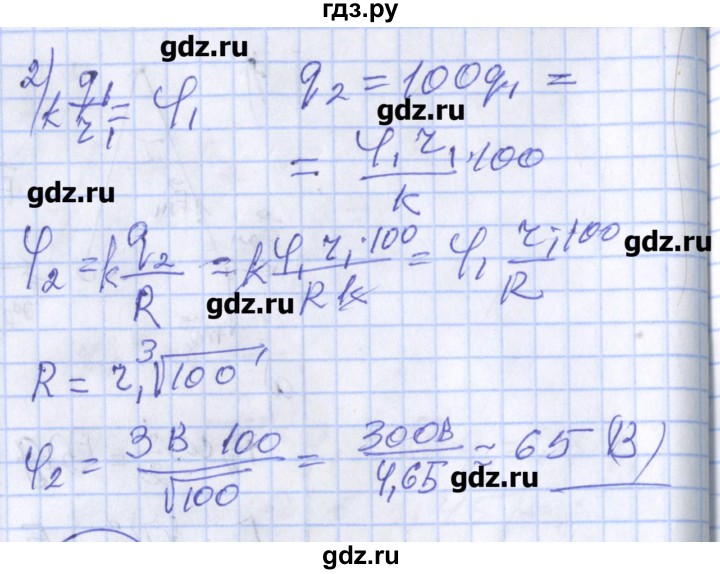 гдз.ру
gdz.ru
2) k q₁/r₁ = φ₁
q₂ = 100q₁ =
gdz.ru
= φ₁ r₁ · 100 / k
gdz.ru
φ₂ = k q₂/R = k φ₁ r₁ · 100 / R k = φ₁ r₁ · 100 / R
gdz.ru
gdz.ru
R = r₁ ³√100
gdz.ru
φ₂ = 3 В 100 / √100 = 300В / 4,65 ≈ 65 (В)
gdz.ru
gdz.ru